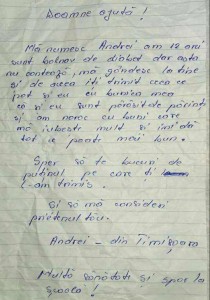 Doamne ajută !
Mă numesc Andrei am 12 ani
sunt bolnav de diabet dar asta
nu contează, mă gândesc la tine
și de aceea îți trimit ceea ce
pot și eu eu bunica mea
că și eu sunt părăsit de părinți
și am noroc cu buni care
mă iubește mult și îmi dă
tot ce poate mai bun.
Sper să te bucuri de
puținul pe care ți
l-am trimis.
Și să mă consideri
prietenul tău.
Andrei - din Timișoara
Multă sănătate și spor la
școală !